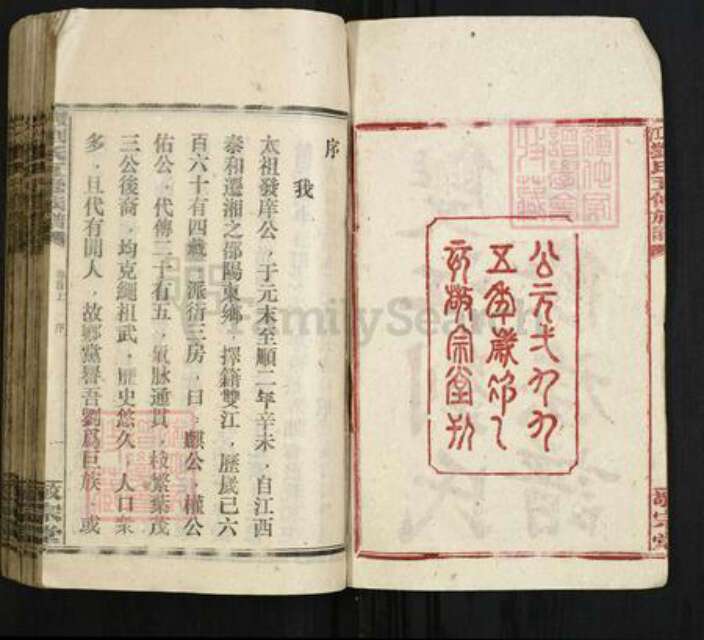 公元弌九九
五年歲次乙
亥敬宗堂刊
敬宗堂
序
我
太祖發庠公，于元末至順二年辛未，自江西
泰和遷湘之邵陽東鄉，擇籍雙江，歷歲已六
百六十有四載，派衍三房，曰：麒公，權公
佑公，代傳二十有五，氣脉通貫，枝繁葉茂
三公後裔，均克繩祖武，歷史悠久，人口衆
多，且代有聞人，故鄉黨譽吾劉爲巨族，或
序
一
敬宗堂
FamilySearch